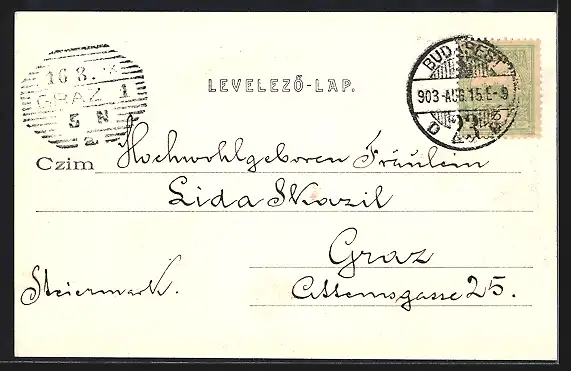 16.8.
GRAZ 1
5 N
2
LEVELEZŐ-LAP.
BUDAPEST
903·AUG.15.E-9
23
Czim Hochwohlgeboren Fräulein
Lida Skazil
Graz
Steiermark.
Attemsgasse 25.